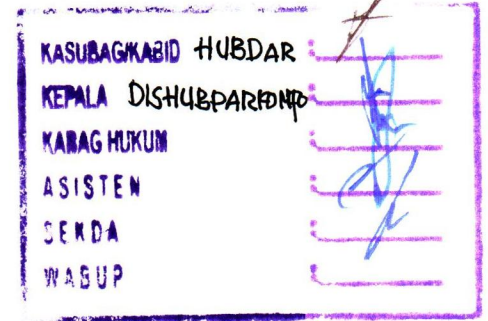 KASUBAG/KABID HUBDAR :
KEPALA DISHUBPARKOMINFO :
KABAG HUKUM :
ASISTEN :
SEKDA :
WABUP :